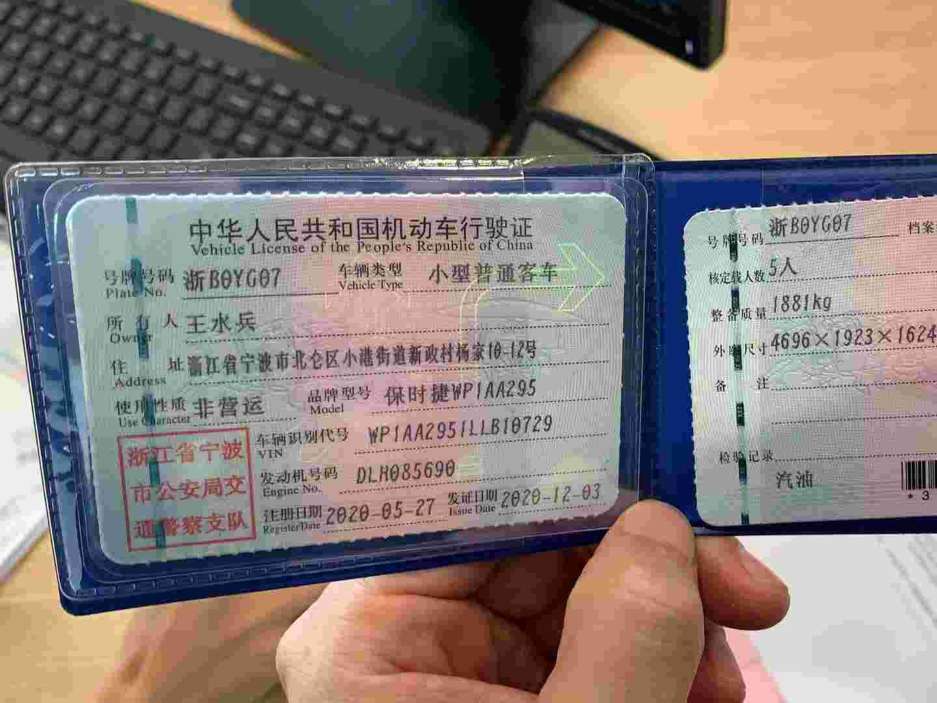 中华人民共和国机动车行驶证
Vehicle License of the People's Republic of China
号牌号码 浙B0YG07 车辆类型 小型普通客车
Plate No. Vehicle Type
所有人 王水兵
Owner
住址 浙江省宁波市北仑区小港街道新政村杨家10-12号
Address
使用性质 非营运 品牌型号 保时捷WP1AA295
Use Character Model
车辆识别代号 WP1AA2951LLB10729
VIN
发动机号码 DLH085690
Engine No.
注册日期 2020-05-27 发证日期 2020-12-03
Register Date Issue Date
浙江省宁波
市公安局交
通警察支队
号牌号码 浙B0YG07 档案
核定载人数 5人
整备质量 1881kg
外廓尺寸 4696×1923×1624
备注
检验记录
汽油
*3